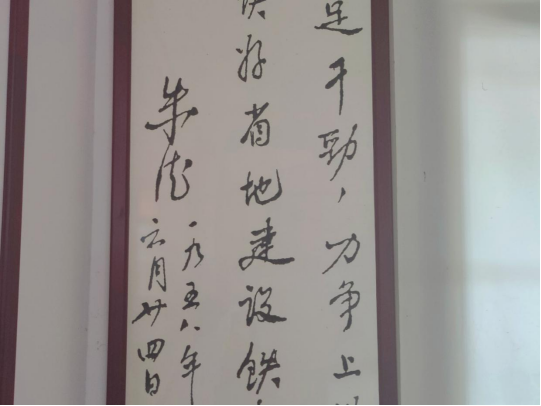 足干劲，力争上
好省地建设铁
朱德
一九五八年
六月廿四日